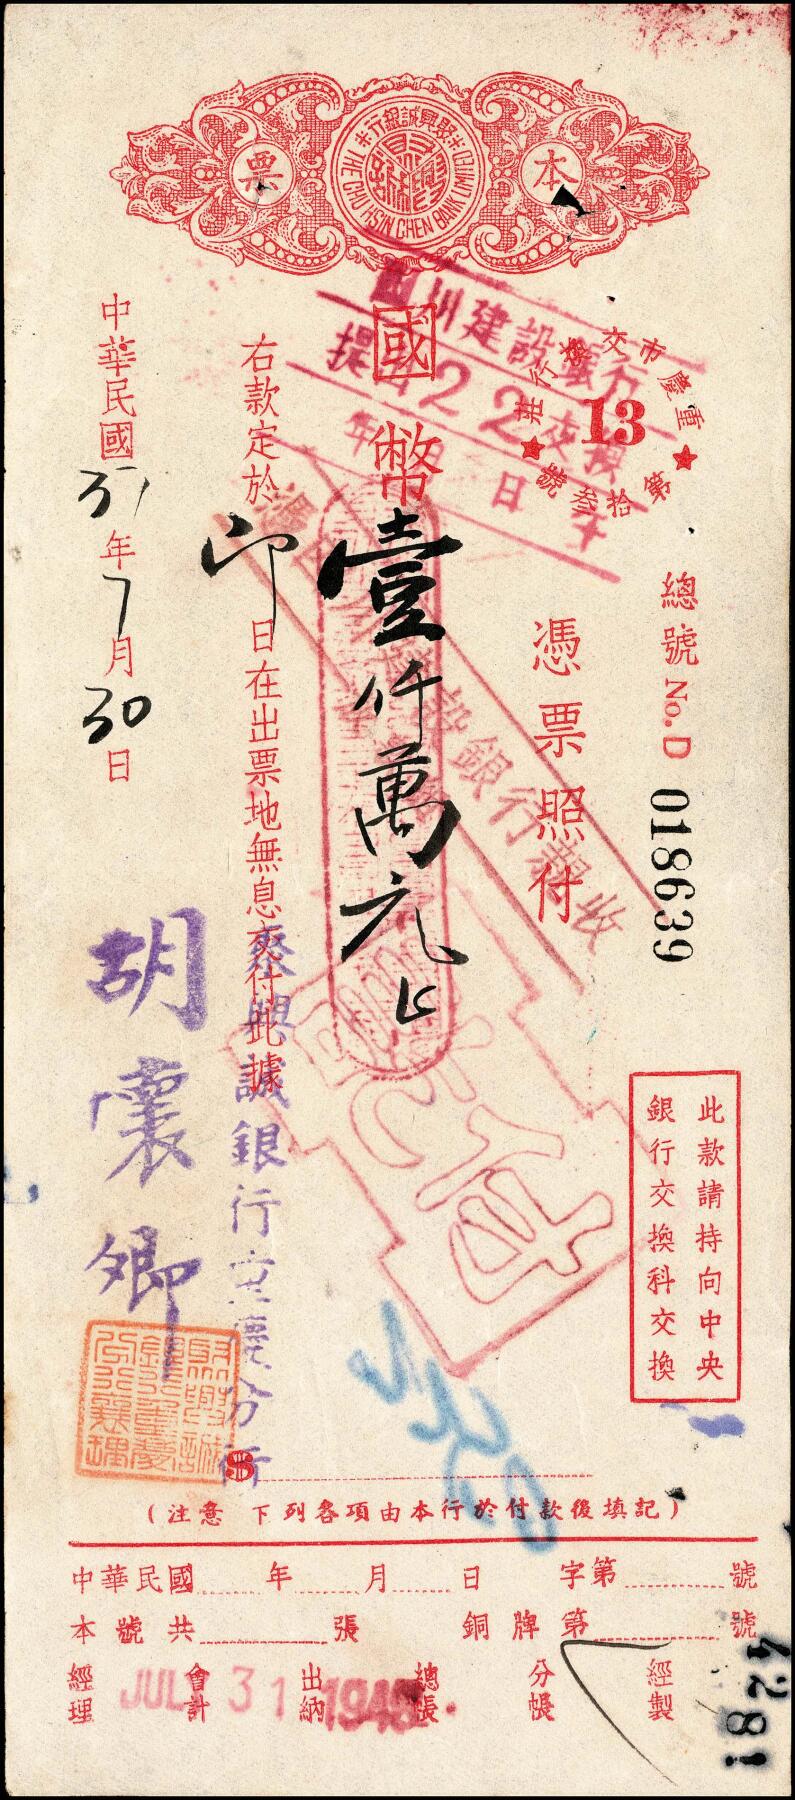 聚興誠銀行
THE CHU HSIN CHEN BANK LIMITED
本票
重慶市
交換行莊
13
第拾叁號
總號 No. D 018639
憑票照付
國幣壹仟萬元正
右款定於即日在出票地無息交付此據
中華民國37年7月30日
此款請持向中央
銀行交換科交換
川建設銀行
提出22交換
年 月 日
建設銀行 收
付訖
聚興誠銀行重慶分行
胡
卿
$
(注意 下列各項由本行於付款後填記)
中華民國 年 月 日 字第 號
本號共 張 銅牌第 號
經理 會計 出納 總帳 分帳 經製
JUL 31 1948